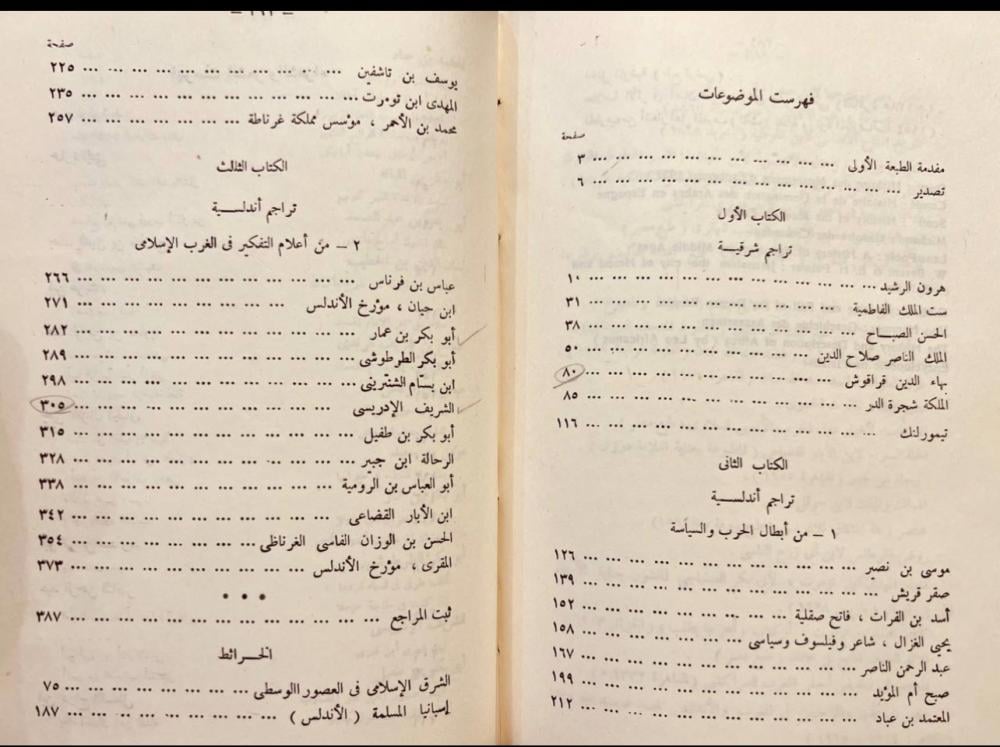 فهرست الموضوعات
صفحة
مقدمة الطبعة الأولى ... ... ... ... ... ... ... ... ... ... ٣
تصدير ... ... ... ... ... ... ... ... ... ... ... ... ٦
الكتاب الأول
تراجم شرقية
هرون الرشيد ... ... ... ... ... ... ... ... ... ... ١٠
ست الملك الفاطمية ... ... ... ... ... ... ... ... ... ٣١
الحسن الصباح ... ... ... ... ... ... ... ... ... ... ٣٨
الملك الناصر صلاح الدين ... ... ... ... ... ... ... ... ٥٠
بهاء الدين قراقوش ... ... ... ... ... ... ... ... ... ٨٠
الملكة شجرة الدر ... ... ... ... ... ... ... ... ... ... ٨٥
تيمورلنك ... ... ... ... ... ... ... ... ... ... ... ١١٦
الكتاب الثانى
تراجم أندلسية
١ - من أبطال الحرب والسياسة
موسى بن نصير ... ... ... ... ... ... ... ... ... ... ١٢٦
صقر قريش ... ... ... ... ... ... ... ... ... ... ... ١٣٩
أسد بن الفرات ، فاتح صقلية ... ... ... ... ... ... ... ١٥٢
يحيى الغزال ، شاعر وفيلسوف وسياسى ... ... ... ... ... ١٥٨
عبد الرحمن الناصر ... ... ... ... ... ... ... ... ... ١٦٧
صبح أم المؤيد ... ... ... ... ... ... ... ... ... ... ١٩٩
المعتمد بن عباد ... ... ... ... ... ... ... ... ... ... ٢١٢
صفحة
يوسف بن تاشفين ... ... ... ... ... ... ... ... ... ... ٢٢٥
المهدى ابن تومرت ... ... ... ... ... ... ... ... ... ... ٢٣٥
محمد بن الأحمر ، مؤسس مملكة غرناطة ... ... ... ... ... ٢٥٧
الكتاب الثالث
تراجم أندلسية
٢ - من أعلام التفكير فى الغرب الإسلامى
عباس بن فرناس ... ... ... ... ... ... ... ... ... ... ٢٦٦
ابن حيان ، مؤرخ الأندلس ... ... ... ... ... ... ... ... ٢٧١
أبو بكر بن عمار ... ... ... ... ... ... ... ... ... ... ٢٨٢
أبو بكر الطرطوشى ... ... ... ... ... ... ... ... ... ... ٢٨٩
ابن بسّام الشنترينى ... ... ... ... ... ... ... ... ... ... ٢٩٨
الشريف الإدريسى ... ... ... ... ... ... ... ... ... ... ٣٠٥
أبو بكر بن طفيل ... ... ... ... ... ... ... ... ... ... ٣١٥
الرحالة ابن جبير ... ... ... ... ... ... ... ... ... ... ٣٢٨
أبو العباس بن الرومية ... ... ... ... ... ... ... ... ... ٣٣٨
ابن الأبار القضاعى ... ... ... ... ... ... ... ... ... ... ٣٤٢
الحسن بن الوزان الفاسى الغرناطى ... ... ... ... ... ... ٣٥٤
المقرى ، مؤرخ الأندلس ... ... ... ... ... ... ... ... ... ٣٧٣
• • •
ثبت المراجع ... ... ... ... ... ... ... ... ... ... ... ٣٨٧
الخرائط
الشرق الإسلامى فى العصور االوسطى ... ... ... ... ... ... ٧٥
إسبانيا المسلمة ( الأندلس ) ... ... ... ... ... ... ... ... ١٨٧